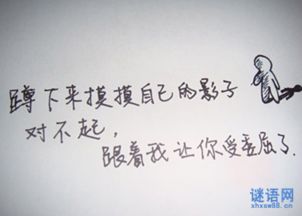 蹲下来摸摸自己的影子
对不起，
跟着我让你受委屈了.
谜语网
xhxsw88.cn